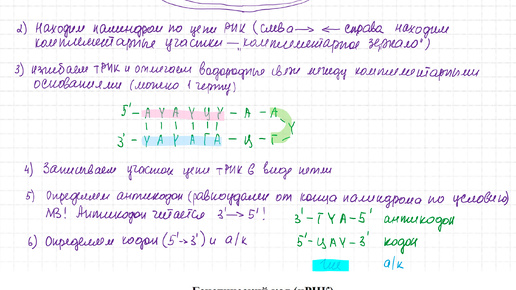 2) Находим палиндром по цепи РНК (слева → ← справа находим
комплементарные участки — "комплементарное зеркало")
3) изгибаем тРНК и отмечаем водородные связи между комплементарными
основаниями (можно 1 черту)
5'- А У А У Ц У - А - А
У
3'- У А У А Г А - Ц - Г
4) Записываем участок цепи тРНК в виде петли
5) Определяем антикодон (равноудален от конца палиндрома по условию)
NB! Антикодон читается 3' → 5'! 3'- Г У А - 5' антикодон
6) Определяем кодон (5'→3') и а/к 5'- Ц А У - 3' кодон
а/к